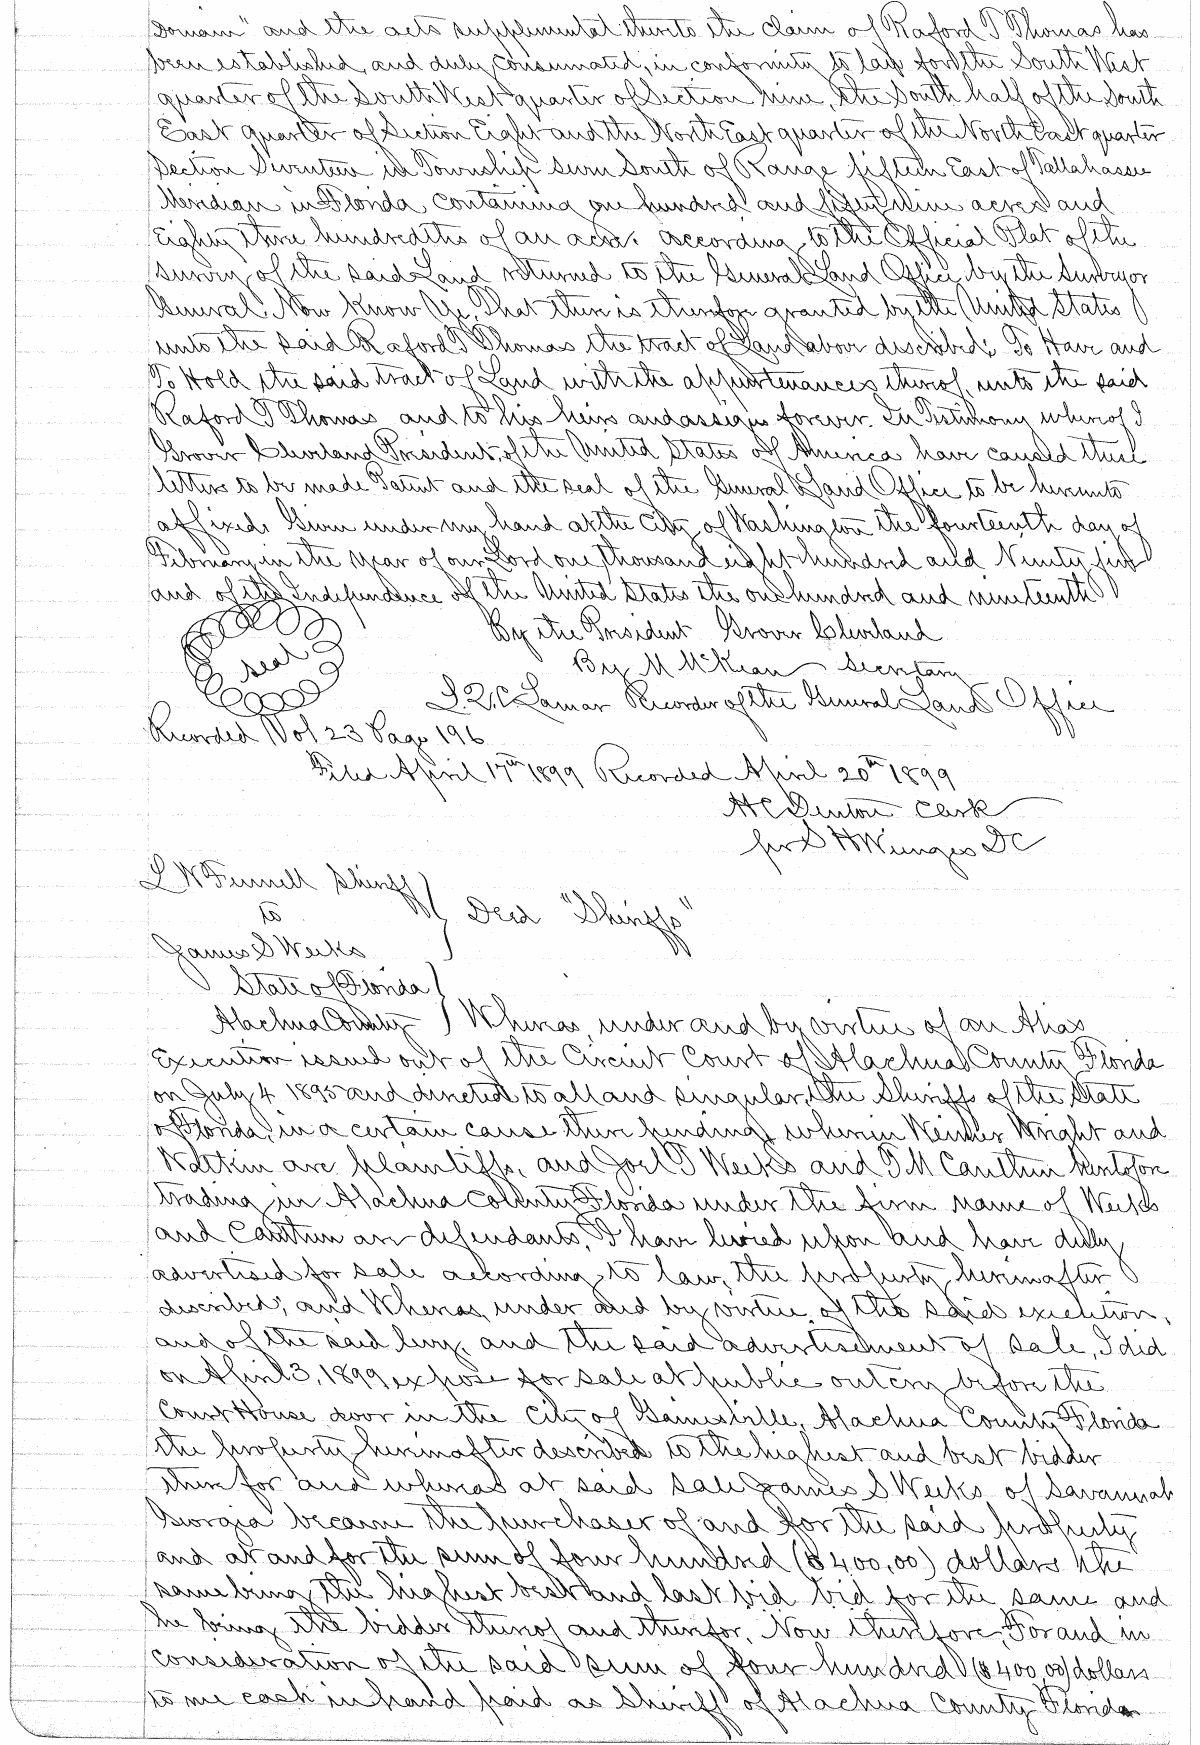 Domain" and the acts supplemental thereto the claim of Raford T Thomas has
been established and duly consummated, in conformity to law for the South West
quarter of the South West quarter of Section nine, the South half of the South
East quarter of Section Eight and the North East quarter of the North East quarter
Section Seventeen in Township seven South of Range fifteen East of Tallahassee
Meridian in Florida containing one hundred and fifty nine acres and
Eighty three hundredths of an acre. according to the Official Plat of the
survey of the said Land returned to the General Land Office by the Surveyor
General. Now Know Ye, That there is therefore granted by the United States
unto the said Raford T Thomas the tract of Land above described; To Have and
To Hold the said tract of Land with the appurtenances thereof, unto the said
Raford T Thomas and to his heirs and assigns forever. In Testimony whereof I
Grover Cleveland President, of the United States of America have caused these
letters to be made Patent and the seal of the General Land Office to be hereunto
affixed. Given under my hand at the City of Washington the fourteenth day of
February in the year of our Lord one thousand eight hundred and Ninety five
and of the Independence of the United States the one hundred and nineteenth
By the President Grover Cleveland
Seal
By M McKean Secretary
L.Q.C Lamar Recorder of the General Land Office
Recorded Vol 23 Page 196
Filed April 17th 1899 Recorded April 20th 1899
H C Denton Clerk
per S H Wienges DC
L W Fennell Sheriff
to
Deed "Sheriffs"
James S Weeks
State of Florida
Alachua County Whereas, under and by virtue of an Alias
Execution issued out of the Circuit Court of Alachua County Florida
on July 4 1895 and directed to all and singular, the Sheriffs of the State
of Florida, in a certain cause there pending wherein Weimer Wright and
Watkin are plaintiffs, and Joel T Weeks and T M Cauthen heretofore
trading in Alachua County Florida under the firm name of Weeks
and Cauthen are defendants, I have levied upon and have duly
advertised for sale according to law, the property hereinafter
described; and Whereas, under and by virtue of the said execution,
and of the said levy, and the said advertisement of sale, I did
on April 3, 1899 expose for sale at public outcry before the
Court House door in the City of Gainesville, Alachua County Florida
the property hereinafter described to the highest and best bidder
there for and whereas at said sale James S Weeks of Savannah
Georgia became the purchaser of and for the said property
and at and for the sum of four hundred ($400,00) dollars the
same being the highest best and last bid bid for the same and
he being the bidder thereof and therefor, Now therefore, For and in
consideration of the said sum of four hundred ($400,00) dollars
to me cash in hand paid as Sheriff of Alachua County Florida